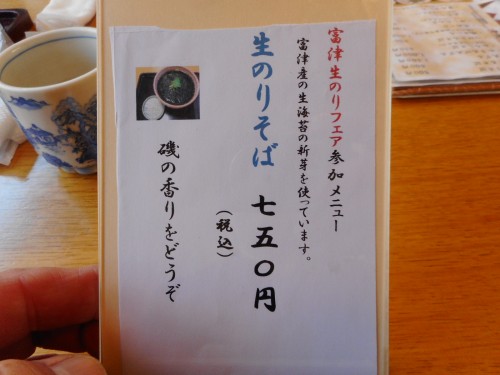 富津生のりフェア参加メニュー
富津産の生海苔の新芽を使っています。
生のりそば 七五〇円
(税込)
磯の香りをどうぞ